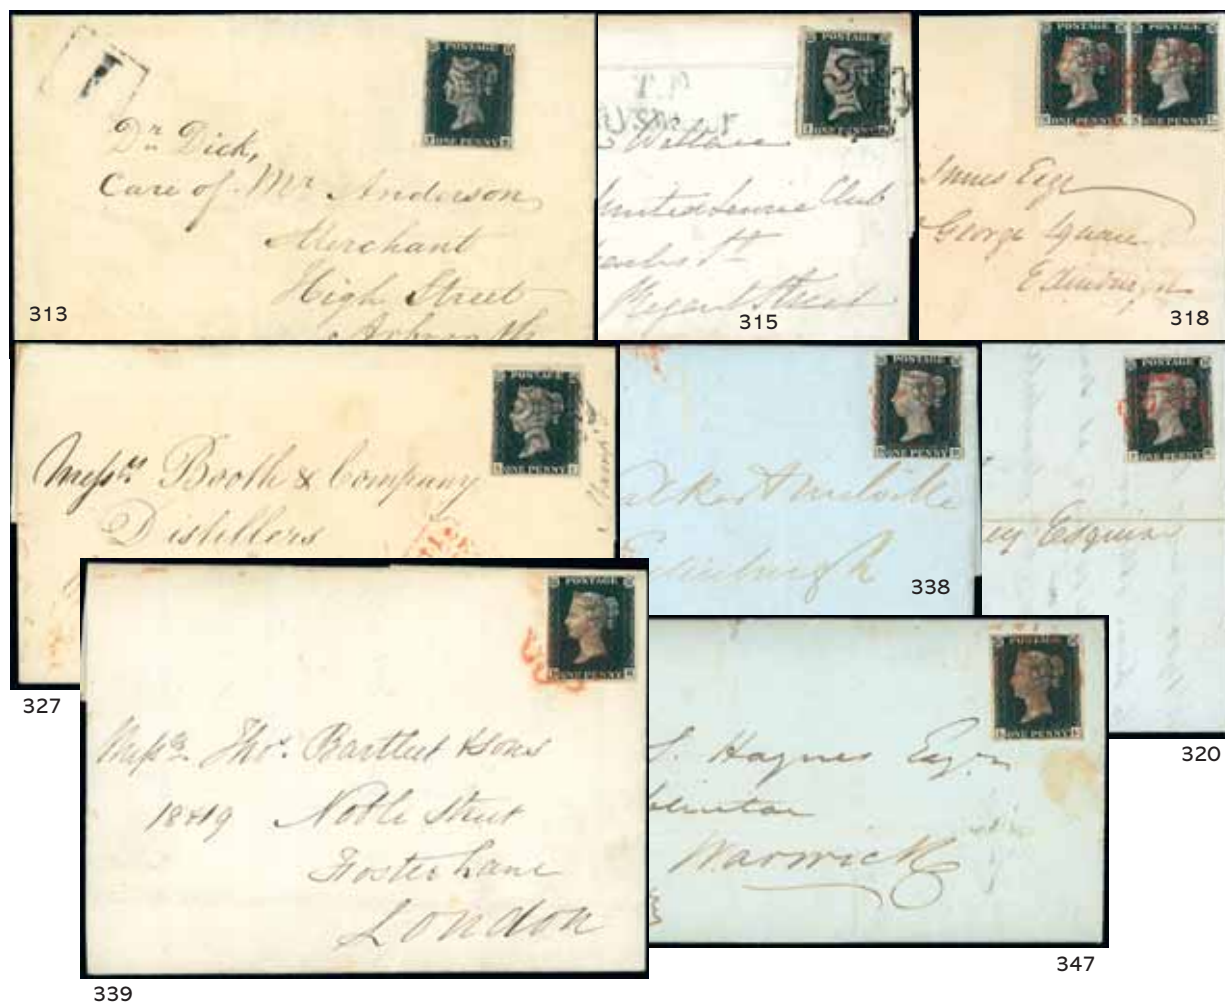 POSTAGE
ONE PENNY
Dr Dick,
Care of Mr Anderson
Merchant
High Street
313
POSTAGE
ONE PENNY
Wallace
Club
Regent Street
315
POSTAGE
ONE PENNY
ONE PENNY
Esqr
George Square
Edinburgh
318
POSTAGE
ONE PENNY
Messrs Booth & Company
Distillers
327
POSTAGE
ONE PENNY
Edinburgh
338
POSTAGE
ONE PENNY
Esquire
320
POSTAGE
ONE PENNY
Messrs Thos. Bartleet & Sons
18 & 19 Noble Street
Foster Lane
London
339
POSTAGE
ONE PENNY
S. Haynes Esqre
Warwick
347